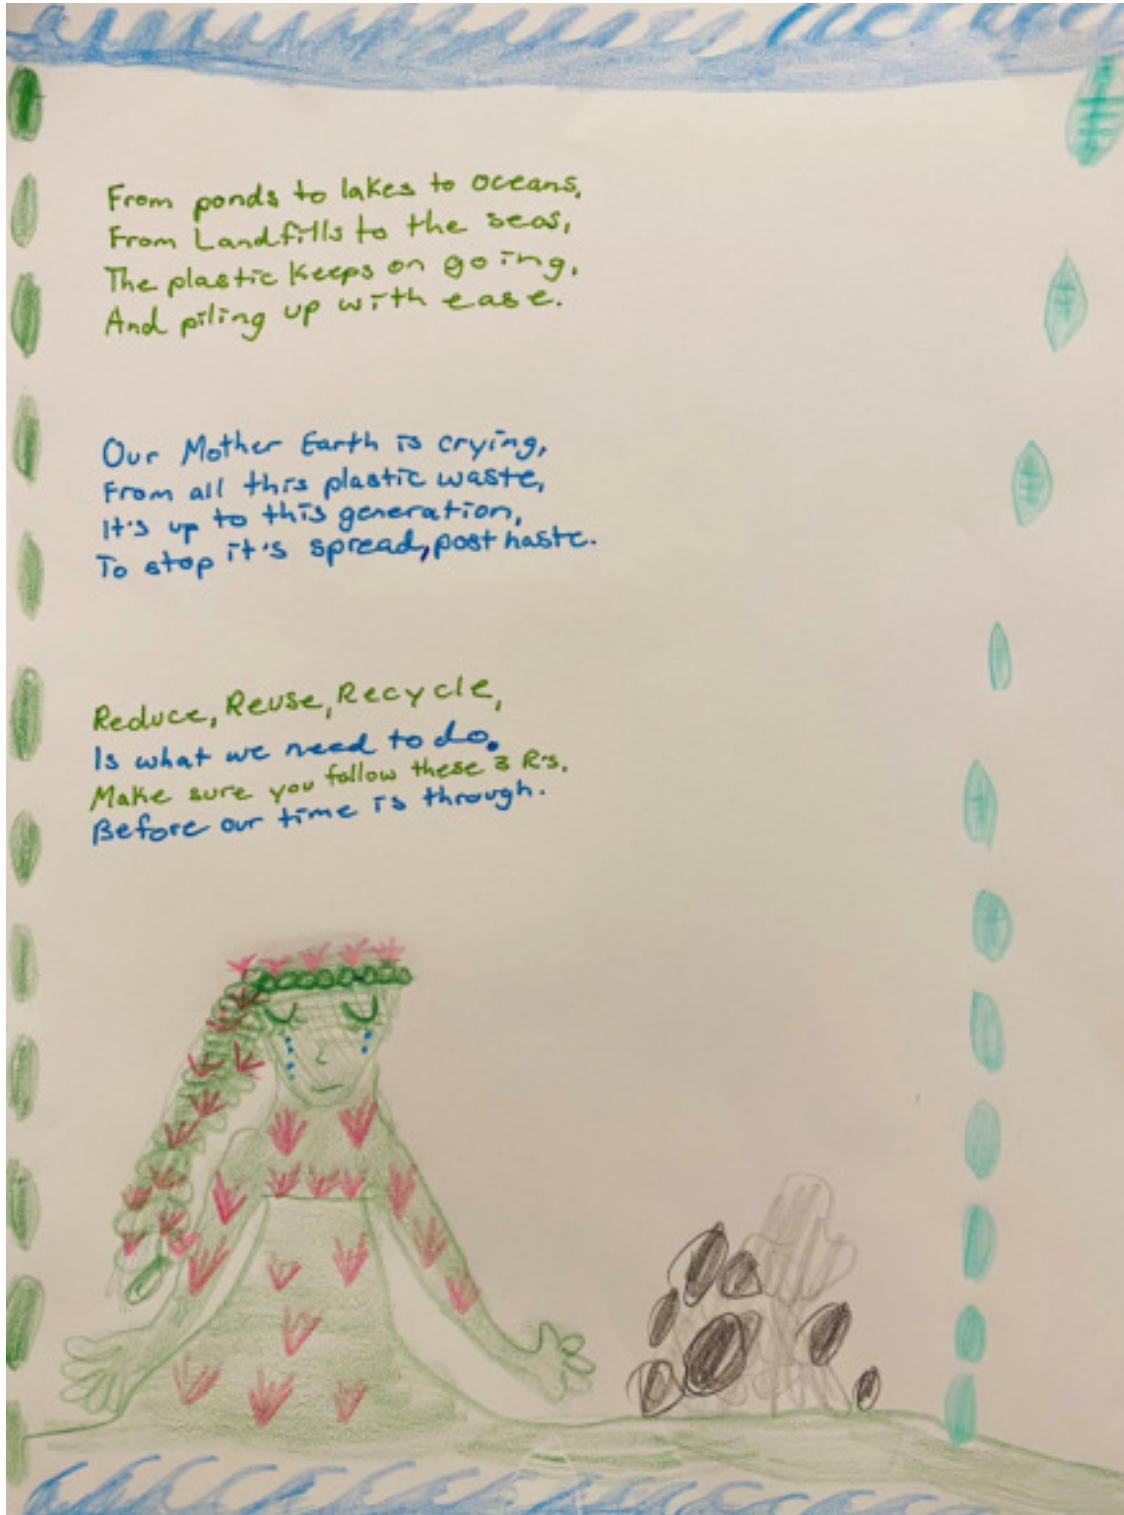 From ponds to lakes to oceans,
From Landfills to the seas,
The plastic keeps on going,
And piling up with ease.
Our Mother Earth is crying,
From all this plastic waste,
It's up to this generation,
To stop it's spread, post haste.
Reduce, Reuse, Recycle,
Is what we need to do.
Make sure you follow these 3 R's.
Before our time is through.